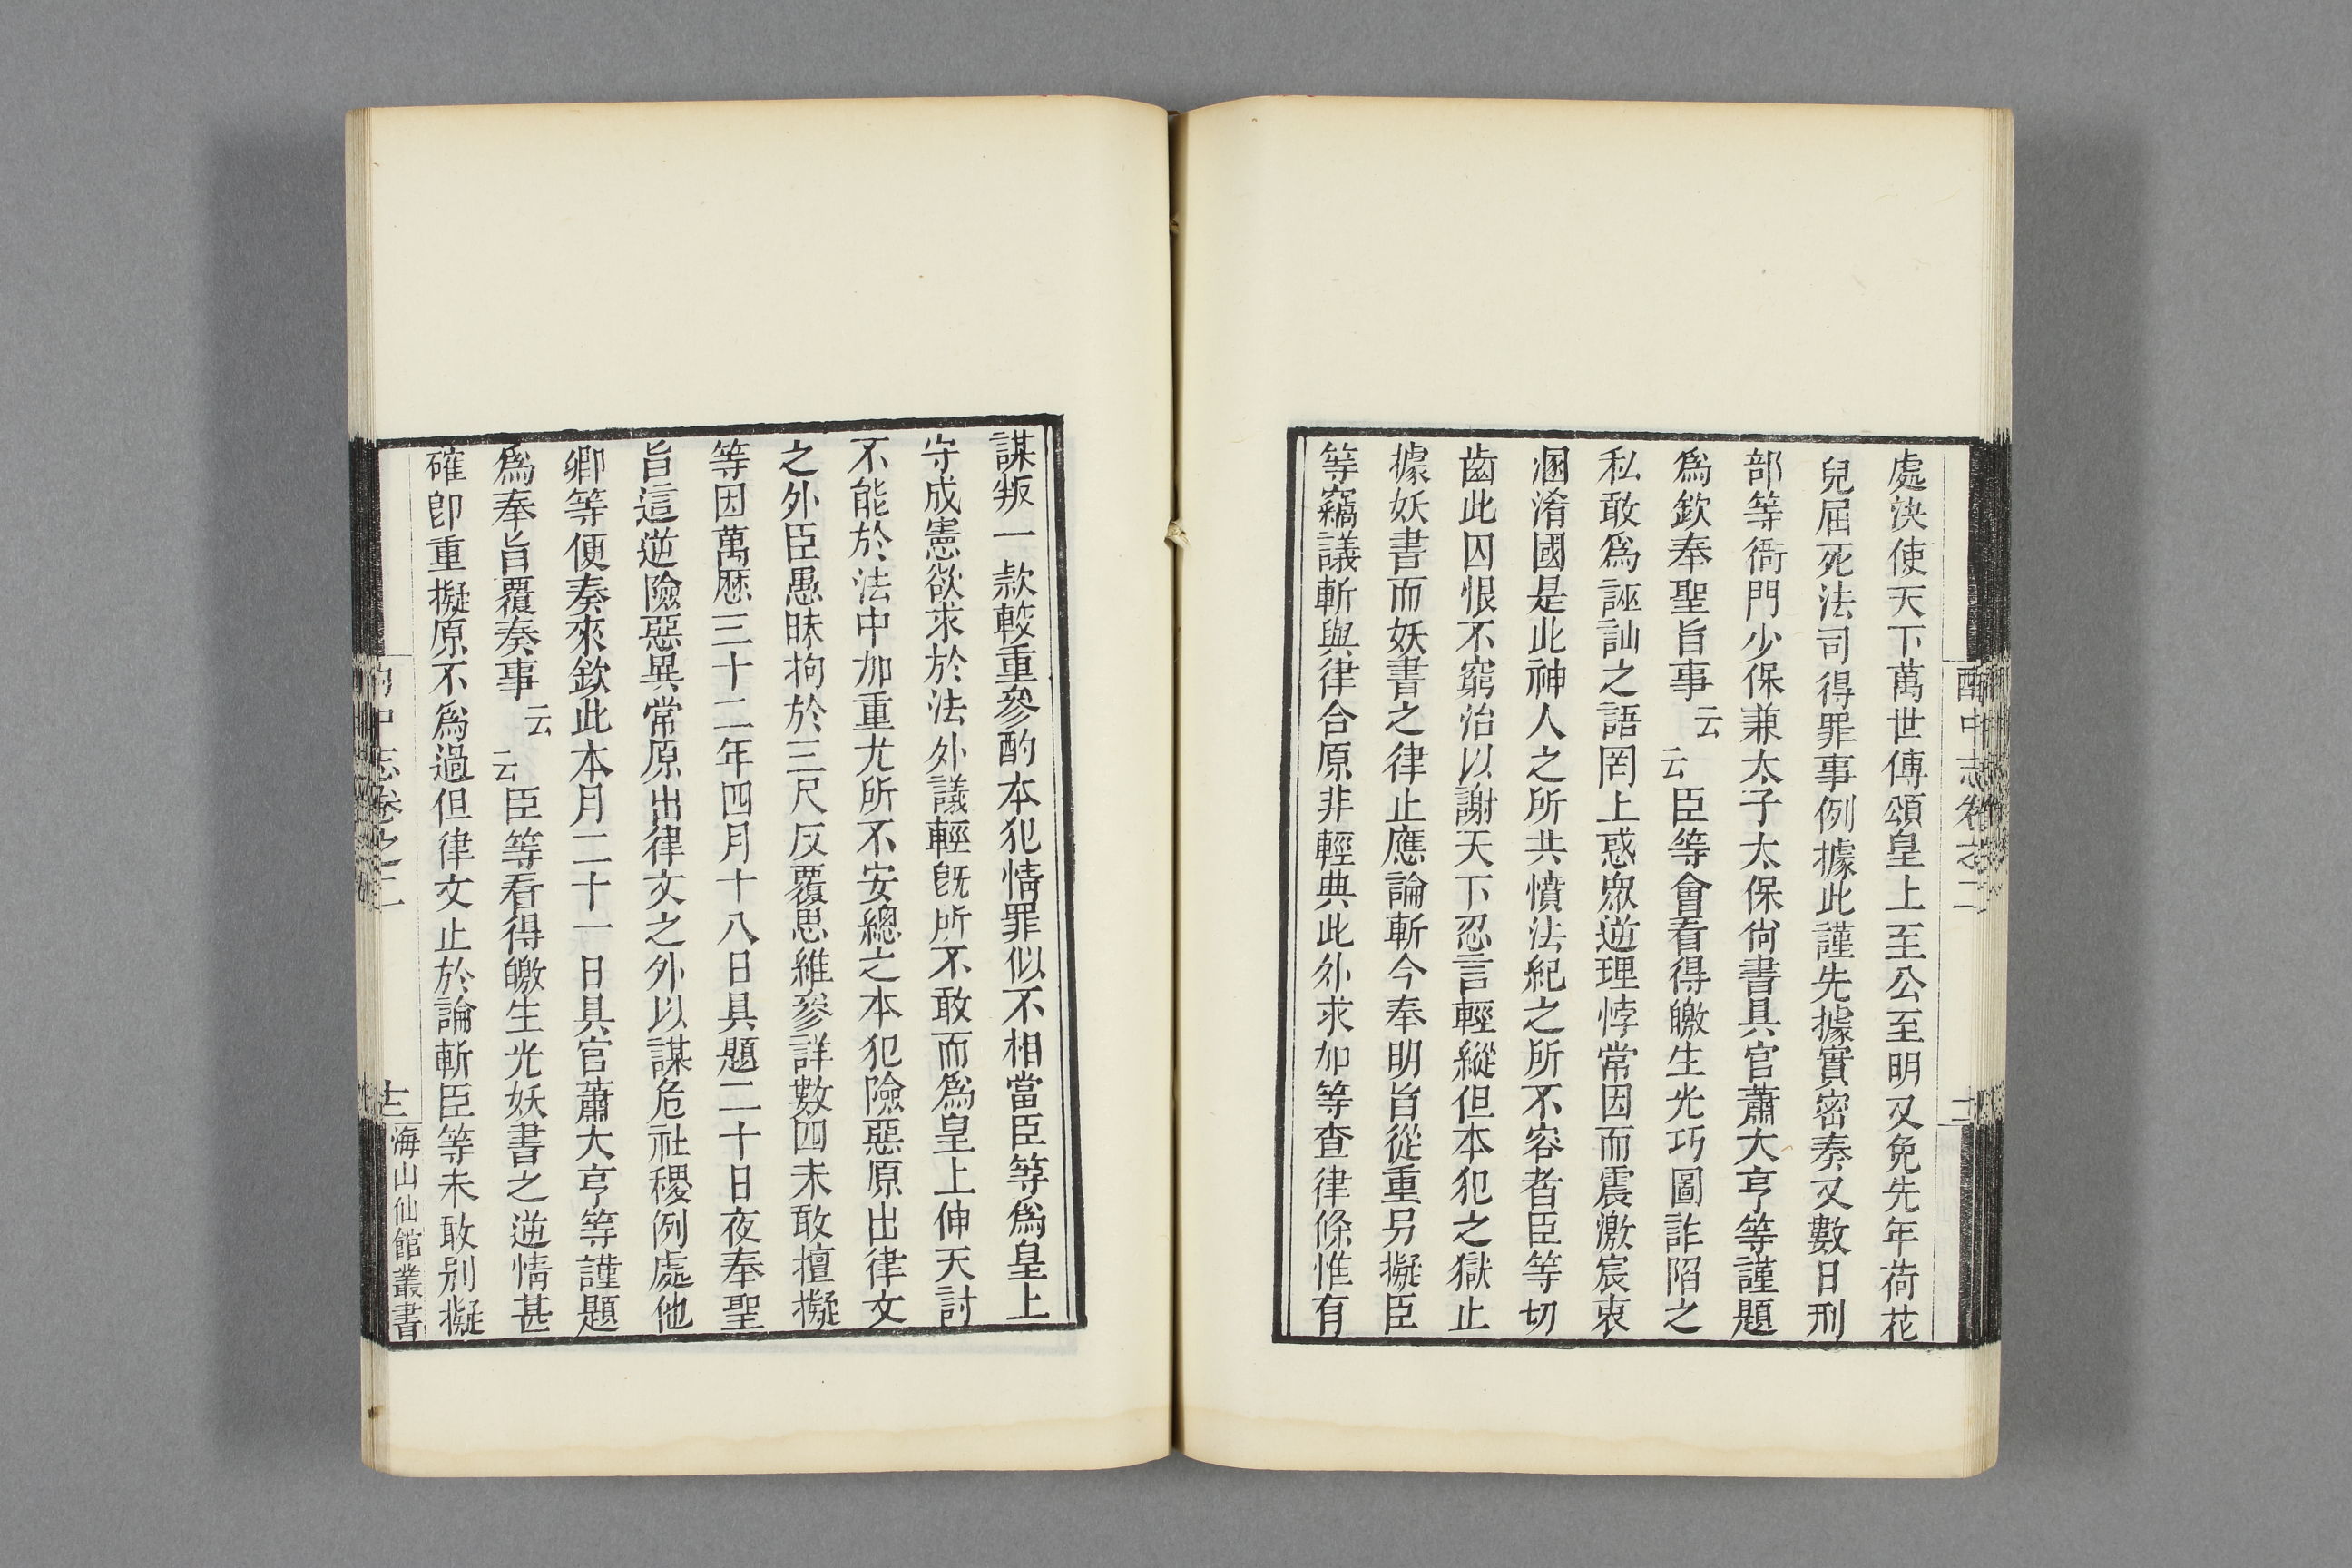 處決使天下萬世傳頌皇上至公至明又免先年荷花
兒屈死法司得罪事例據此謹先據實密奏又數日刑
部等衙門少保兼太子太保尚書具官蕭大亨等謹題
爲欽奉聖旨事云云臣等會看得皦生光巧圖詐陷之
私敢爲誣訕之語罔上惑眾逆理悖常因而震激宸衷
溷淆國是此神人之所共憤法紀之所不容者臣等切
齒此囚恨不窮治以謝天下忍言輕縱但本犯之獄止
據妖書而妖書之律止應論斬今奉明旨從重另擬臣
等竊議斬與律合原非輕典此外求加等查律條惟有
酌中志卷之二
十二
謀叛一款較重參酌本犯情罪似不相當臣等爲皇上
守成憲欲求於法外議輕旣所不敢而爲皇上伸天討
不能於法中加重尤所不安總之本犯險惡原出律文
之外臣愚昧拘於三尺反覆思維參詳數四未敢擅擬
等因萬厯三十二年四月十八日具題二十日夜奉聖
旨這逆險惡異常原出律文之外以謀危社稷例處他
卿等便奏來欽此本月二十一日具官蕭大亨等謹題
爲奉旨覆奏事云云臣等看得皦生光妖書之逆情甚
確卽重擬原不爲過但律文止於論斬臣等未敢別擬
酌中志卷之二
十三
海山仙館叢書